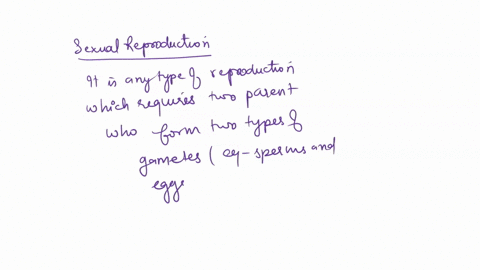 Sexual Reproduction
It is any type of reproduction
which requires two parent
who form two types of
gametes ( eg - sperms and
eggs